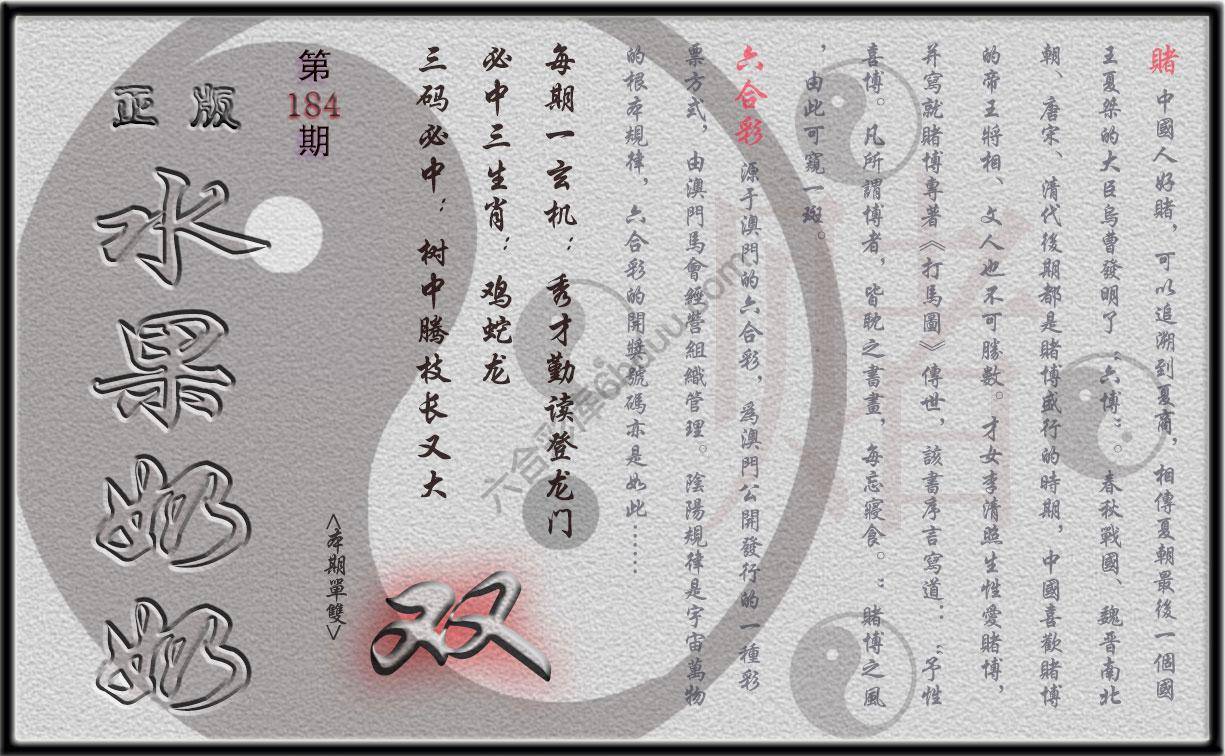 賭 中國人好賭，可以追溯到夏商，相傳夏朝最後一個國
王夏桀的大臣烏曹發明了“六博”。春秋戰國、魏晋南北
朝、唐宋、清代後期都是賭博盛行的時期，中國喜歡賭博
的帝王將相、文人也不可勝數。才女李清照生性愛賭博，
并寫就賭博專著《打馬圖》傳世，該書序言寫道：“予性
喜博。凡所謂博者，皆耽之書畫，每忘寢食。”賭博之風
，由此可窺一斑。
六合彩 源于澳門的六合彩，為澳門公開發行的一種彩
票方式，由澳門馬會經營組織管理。陰陽規律是宇宙萬物
的根本規律，六合彩的開獎號碼亦是如此……
每期一玄机：秀才勤读登龙门
必中三生肖：鸡蛇龙
三码必中：树中腾枝长又大
第184期
<本期單雙>
双
正版
水果奶奶
賭